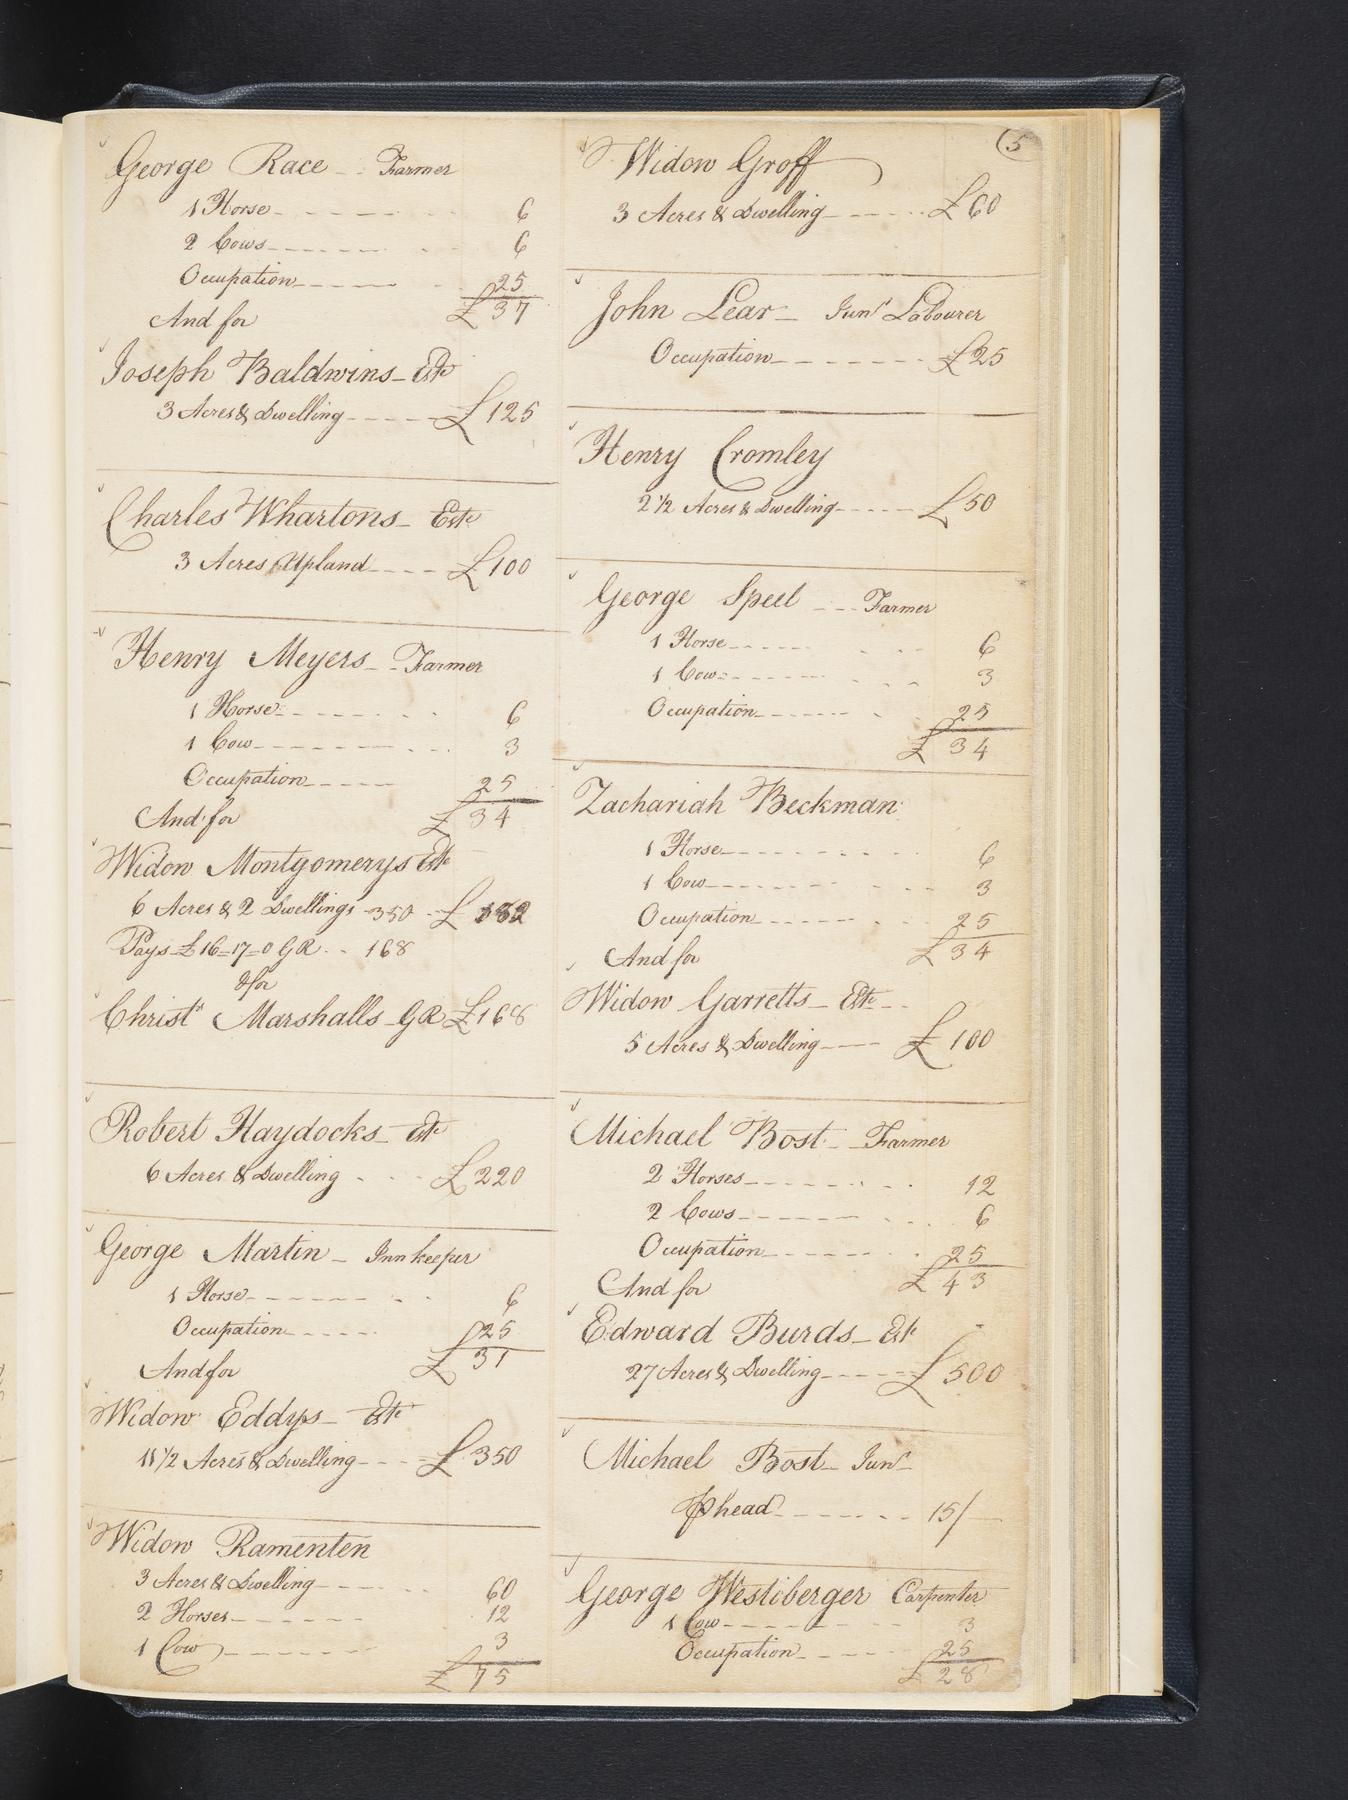 George Race - Farmer
1 Horse 6
2 Cows 6
Occupation 25
£37
And for
Joseph Baldwins - Este
3 Acres & Dwelling £125
Charles Whartons - Este
3 Acres Upland £100
Henry Meyers - Farmer
1 Horse 6
1 Cow 3
Occupation 25
And for £34
Widow Montgomerys Este
6 Acres & 2 Dwellings 350 - £182
Pays £16=17=0 GR - 168
& for
Christr Marshalls - GR £168
Robert Haydocks - Este
6 Acres & Dwelling £220
George Martin - Innkeeper
1 Horse 6
Occupation 25
And for £31
Widow Eddys - Este
11 1/2 Acres & Dwelling £350
Widow Ramenten
3 Acres & Dwelling 60
2 Horses 12
1 Cow 3
£75
(5
Widow Groff
3 Acres & Dwelling £60
John Lear - Junr Labourer
Occupation £25
Henry Cromley
2 1/2 Acres & Dwelling £50
George Speel - Farmer
1 Horse 6
1 Cow 3
Occupation 25
£34
Zachariah Beckman
1 Horse 6
1 Cow 3
Occupation 25
And for £34
Widow Garretts - Este
5 Acres & Dwelling £100
Michael Bost - Farmer
2 Horses 12
2 Cows 6
Occupation 25
And for £43
Edward Burds - Este
27 Acres & Dwelling £500
Michael Bost - Junr
head 15/
George Westiberger Carpenter
1 Cow 3
Occupation 25
£28